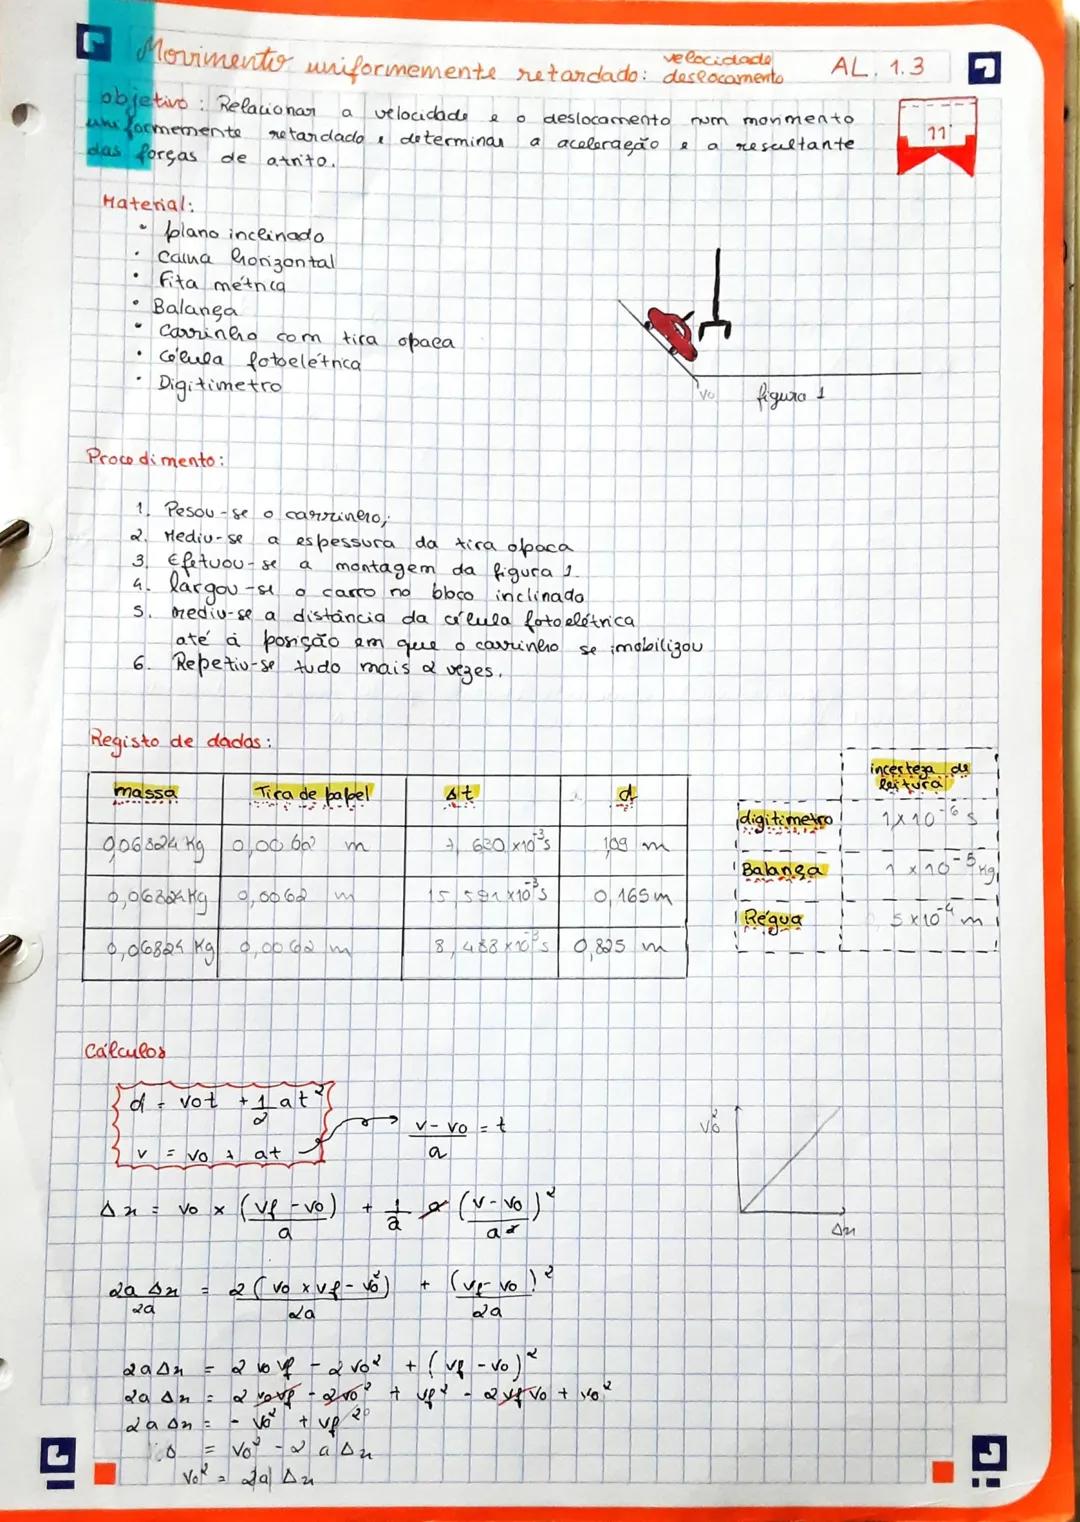 Movimento uniformemente retardado: velocidade deslocamento AL. 1.3
objetivo: Relacionar a velocidade e o deslocamento num movimento
uniformemente retardado e determinar a aceleração e a resultante
das forças de atrito.
11º
Material:
• plano inclinado
• Calha horizontal
• Fita métrica
• Balança
• Carrinho com tira opaca
• Célula fotoelétrica
• Digitimetro
v0
figura 1
Procedimento:
1. Pesou-se o carrinho;
2. Mediu-se a espessura da tira opaca
3. Efetuou-se a montagem da figura 1.
4. largou-se o carro no bloco inclinado
5. mediu-se a distância da célula fotoelétrica
até à posição em que o carrinho se imobilizou
6. Repetiu-se tudo mais 2 vezes.
Registo de dados:
massa Tira de papel Δt d
0,06824 Kg 0,0062 m 7,630 x10⁻³s 1,09 m
0,06824 Kg 0,0062 m 15,591 x10⁻³s 0,165 m
0,06824 Kg 0,0062 m 8,488 x10⁻³s 0,825 m
incerteza de
leitura
digitimetro 1x10⁻⁶ s
Balança 1 x 10⁻⁵ Kg
Régua 5x10⁻⁴ m
Cálculos
d = v0t + 1/2 at²
v = v0 + at
v - v0 / a = t
Δx = v0 x (vf - v0)/a + 1/2 a (v - v0)²/a²
2a Δx / 2a = 2(v0 x vf - v0²)/2a + (vf - v0)²/2a
2aΔx = 2 v0 vf - 2v0² + (vf - v0)²
2a Δx = 2 v0vf - 2v0² + vf² - 2vf v0 + v0²
2a Δx = - v0² + vf² 0
0 = v0² - 2 a Δx
v0² = 2a Δx
v0²
Δx